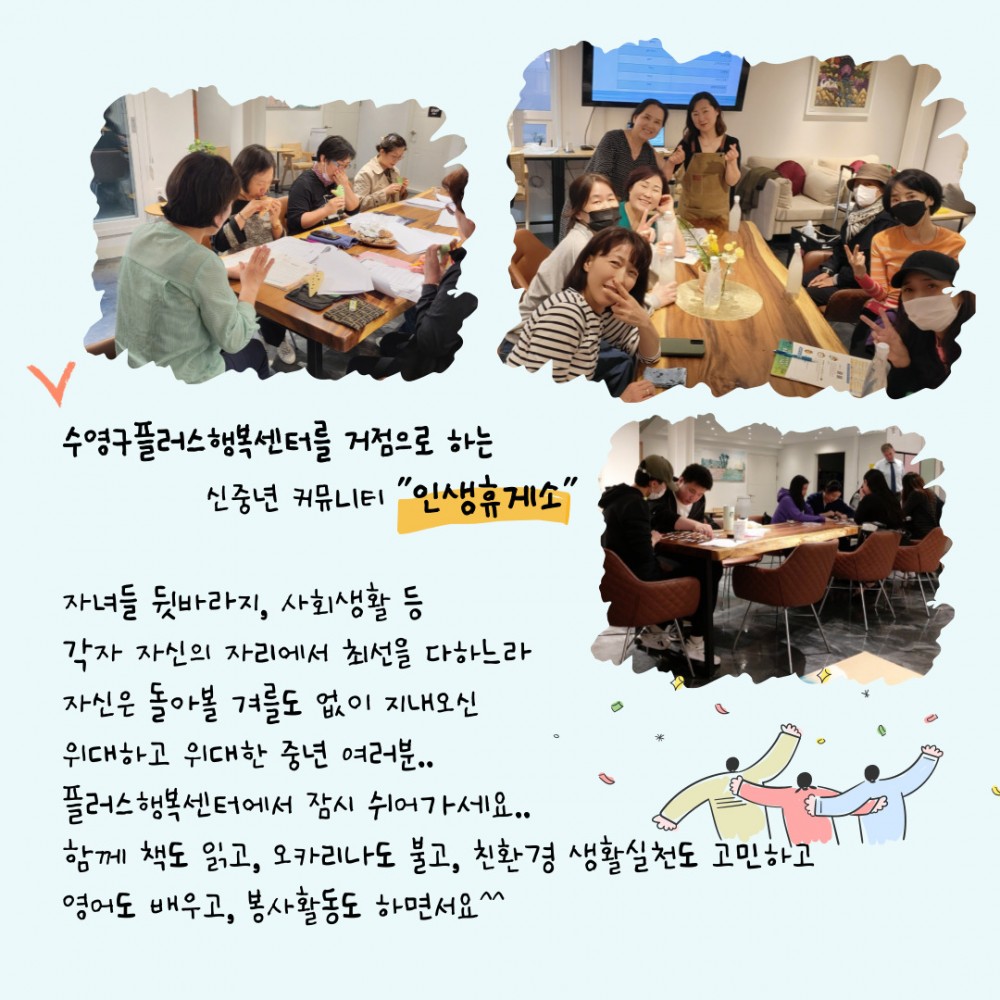 수영구플러스행복센터를 거점으로 하는
신중년 커뮤니티 "인생휴게소"
자녀들 뒷바라지, 사회생활 등
각자 자신의 자리에서 최선을 다하느라
자신은 돌아볼 겨를도 없이 지내오신
위대하고 위대한 중년 여러분..
플러스행복센터에서 잠시 쉬어가세요..
함께 책도 읽고, 오카리나도 불고, 친환경 생활실천도 고민하고
영어도 배우고, 봉사활동도 하면서요^^